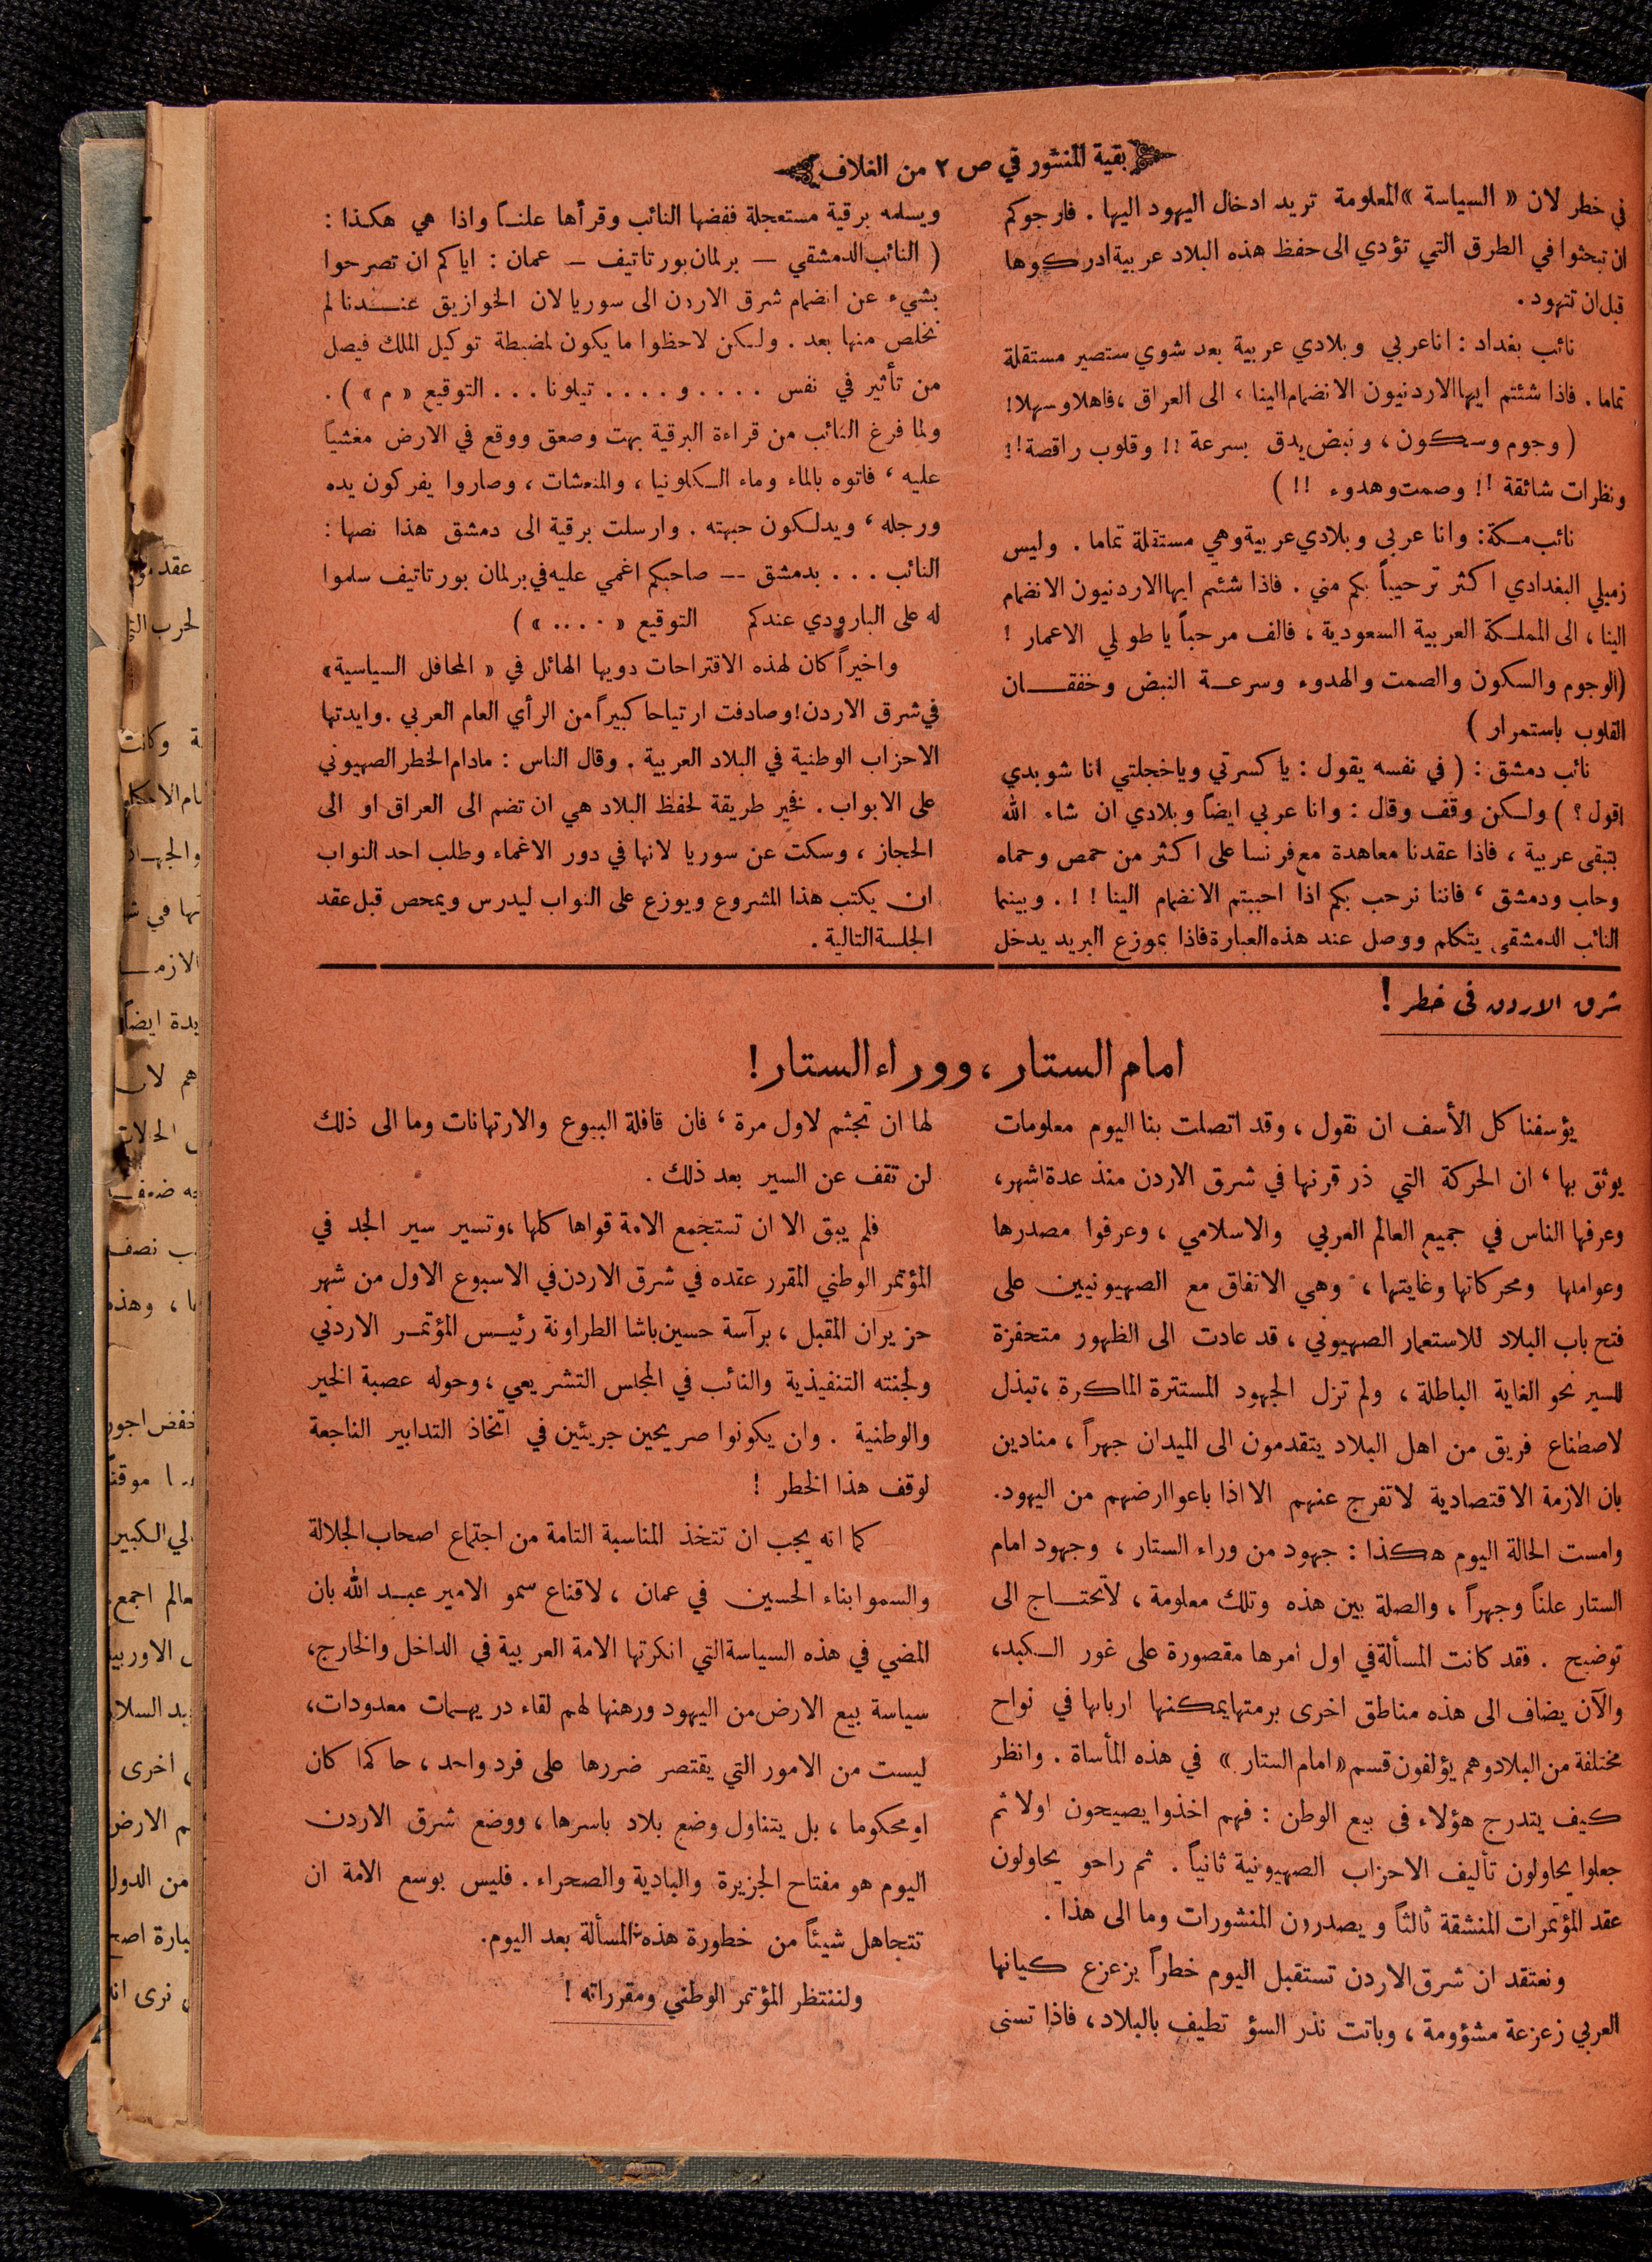 بقية المنشور في ص ٢ من الغلاف
في خطر لان « السياسة » المعلومة تريد ادخال اليهود اليها . فارجوكم
ان تبحثوا في الطرق التي تؤدي الى حفظ هذه البلاد عربية ادركوها
قبل ان تتهود .
نائب بغداد : انا عربي وبلادي عربية بعد شوي ستصير مستقلة
تماما . فاذا شئتم ايها الاردنيون الانضمام الينا ، الى العراق ، فاهلا وسهلا !
( وجوم وسكون ، ونبض يدق بسرعة !! وقلوب راقصة !!
ونظرات شائقة !! وصمت وهدوء !! )
نائب مكة : وانا عربي وبلادي عربية وهي مستقلة تماما . وليس
زميلي البغدادي اكثر ترحيباً بكم مني . فاذا شئتم ايها الاردنيون الانضمام
الينا ، الى المملكة العربية السعودية ، فالف مرحباً يا طويلي الاعمار !
( الوجوم والسكون والصمت والهدوء وسرعة النبض وخفقان
القلوب باستمرار )
نائب دمشق : ( في نفسه يقول : يا كسرتي وياخجلتي انا شو بدي
اقول ؟ ) ولكن وقف وقال : وانا عربي ايضاً وبلادي ان شاء الله
بتبقى عربية ، فاذا عقدنا معاهدة مع فرنسا على اكثر من حمص وحماه
وحلب ودمشق ، فاننا نرحب بكم اذا احببتم الانضمام الينا ! ! . وبينما
النائب الدمشقي يتكلم ووصل عند هذه العبارة فاذا بموزع البريد يدخل
ويسلمه برقية مستعجلة ففضها النائب وقرأها علناً واذا هي هكذا :
( النائب الدمشقي — برلمان بورتاتيف — عمان : اياكم ان تصرحوا
بشيء عن انضمام شرق الاردن الى سوريا لان الخوازيق عندنا لم
نخلص منها بعد . ولكن لاحظوا ما يكون لمضبطة توكيل الملك فيصل
من تأثير في نفس . . . . و . . . . تيلونا . . . التوقيع « م » ) .
ولما فرغ النائب من قراءة البرقية بهت وصعق ووقع في الارض مغشياً
عليه ، فاتوه بالماء وماء الكلونيا ، والمنعشات ، وصاروا يفركون يده
ورجله ، ويدلكون جبهته . وارسلت برقية الى دمشق هذا نصها :
النائب . . . بدمشق — صاحبكم اغمي عليه في برلمان بورتاتيف سلموا
له على البارودي عندكم التوقيع « . . . . » )
واخيراً كان لهذه الاقتراحات دويها الهائل في « المحافل السياسية »
في شرق الاردن ! وصادفت ارتياحا كبيراً من الرأي العام العربي . وايدتها
الاحزاب الوطنية في البلاد العربية . وقال الناس : مادام الخطر الصهيوني
على الابواب . فخير طريقة لحفظ البلاد هي ان تضم الى العراق او الى
الحجاز ، وسكت عن سوريا لانها في دور الاغماء وطلب احد النواب
ان يكتب هذا المشروع ويوزع على النواب ليدرس ويمحص قبل عقد
الجلسة التالية .
شرق الاردن في خطر !
امام الستار ، ووراء الستار !
يؤسفنا كل الأسف ان نقول ، وقد اتصلت بنا اليوم معلومات
يوثق بها ، ان الحركة التي ذر قرنها في شرق الاردن منذ عدة اشهر ،
وعرفها الناس في جميع العالم العربي والاسلامي ، وعرفوا مصدرها
وعواملها ومحركاتها وغايتها ، وهي الاتفاق مع الصهيونيين على
فتح باب البلاد للاستعمار الصهيوني ، قد عادت الى الظهور متحفزة
للسير نحو الغاية الباطلة ، ولم تزل الجهود المستترة الماكرة ، تبذل
لاصطناع فريق من اهل البلاد يتقدمون الى الميدان جهراً ، منادين
بان الازمة الاقتصادية لا تفرج عنهم الا اذا باعوا ارضهم من اليهود .
وامست الحالة اليوم هكذا : جهود من وراء الستار ، وجهود امام
الستار علناً وجهراً ، والصلة بين هذه وتلك معلومة ، لاتحتاج الى
توضيح . فقد كانت المسألة في اول امرها مقصورة على غور الكبد ،
والآن يضاف الى هذه مناطق اخرى برمتها يمكنها اربابها في نواح
مختلفة من البلاد وهم يؤلفون قسم « امام الستار » في هذه المأساة . وانظر
كيف يتدرج هؤلاء في بيع الوطن : فهم اخذوا يصيحون اولا ثم
جعلوا يحاولون تأليف الاحزاب الصهيونية ثانياً . ثم راحو يحاولون
عقد المؤتمرات المنشقة ثالثاً ويصدرون المنشورات وما الى هذا .
ونعتقد ان شرق الاردن تستقبل اليوم خطراً يزعزع كيانها
العربي زعزعة مشؤومة ، وباتت نذر السؤ تطيف بالبلاد ، فاذا تسنى
لها ان تجثم لاول مرة ، فان قافلة البيوع والارتهانات وما الى ذلك
لن تقف عن السير بعد ذلك .
فلم يبق الا ان تستجمع الامة قواها كلها ، وتسير سير الجد في
المؤتمر الوطني المقرر عقده في شرق الاردن في الاسبوع الاول من شهر
حزيران المقبل ، برآسة حسين باشا الطراونة رئيس المؤتمر الاردني
ولجنته التنفيذية والنائب في المجلس التشريعي ، وحوله عصبة الخير
والوطنية . وان يكونوا صريحين جريئين في اتخاذ التدابير الناجعة
لوقف هذا الخطر !
كما انه يجب ان تتخذ المناسبة التامة من اجتماع اصحاب الجلالة
والسمو ابناء الحسين في عمان ، لاقناع سمو الامير عبد الله بان
المضي في هذه السياسة التي انكرتها الامة العربية في الداخل والخارج ،
سياسة بيع الارض من اليهود ورهنها لهم لقاء دريهمات معدودات ،
ليست من الامور التي يقتصر ضررها على فرد واحد ، حاكما كان
او محكوما ، بل يتناول وضع بلاد باسرها ، ووضع شرق الاردن
اليوم هو مفتاح الجزيرة والبادية والصحراء . فليس بوسع الامة ان
تتجاهل شيئاً من خطورة هذه المسألة بعد اليوم .
ولننتظر المؤتمر الوطني ومقرراته !